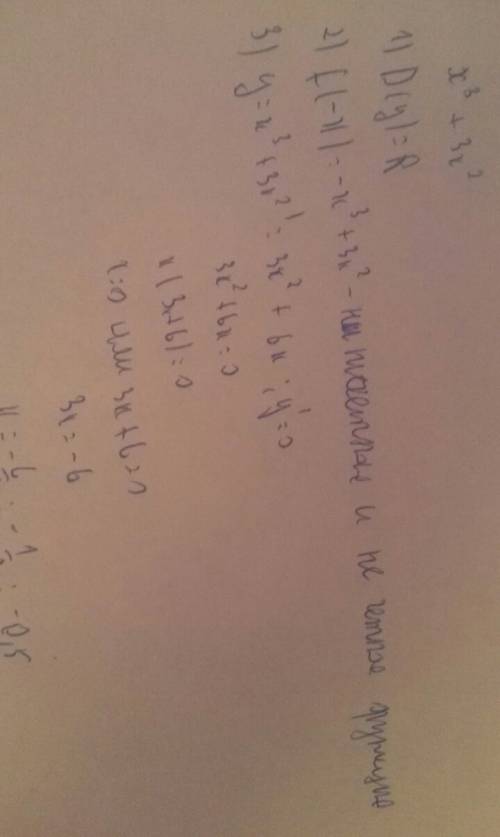 x³ + 3x²
1) D(y) = R
2) f(-x) = -x³ + 3x² - и не четная функция
3) y = x³ + 3x²' = 3x² + 6x ; y' = 0
3x² + 6x = 0
x(3x+6) = 0
x=0 или 3x+6=0
3x = -6
x = - : - 1 : -0,5